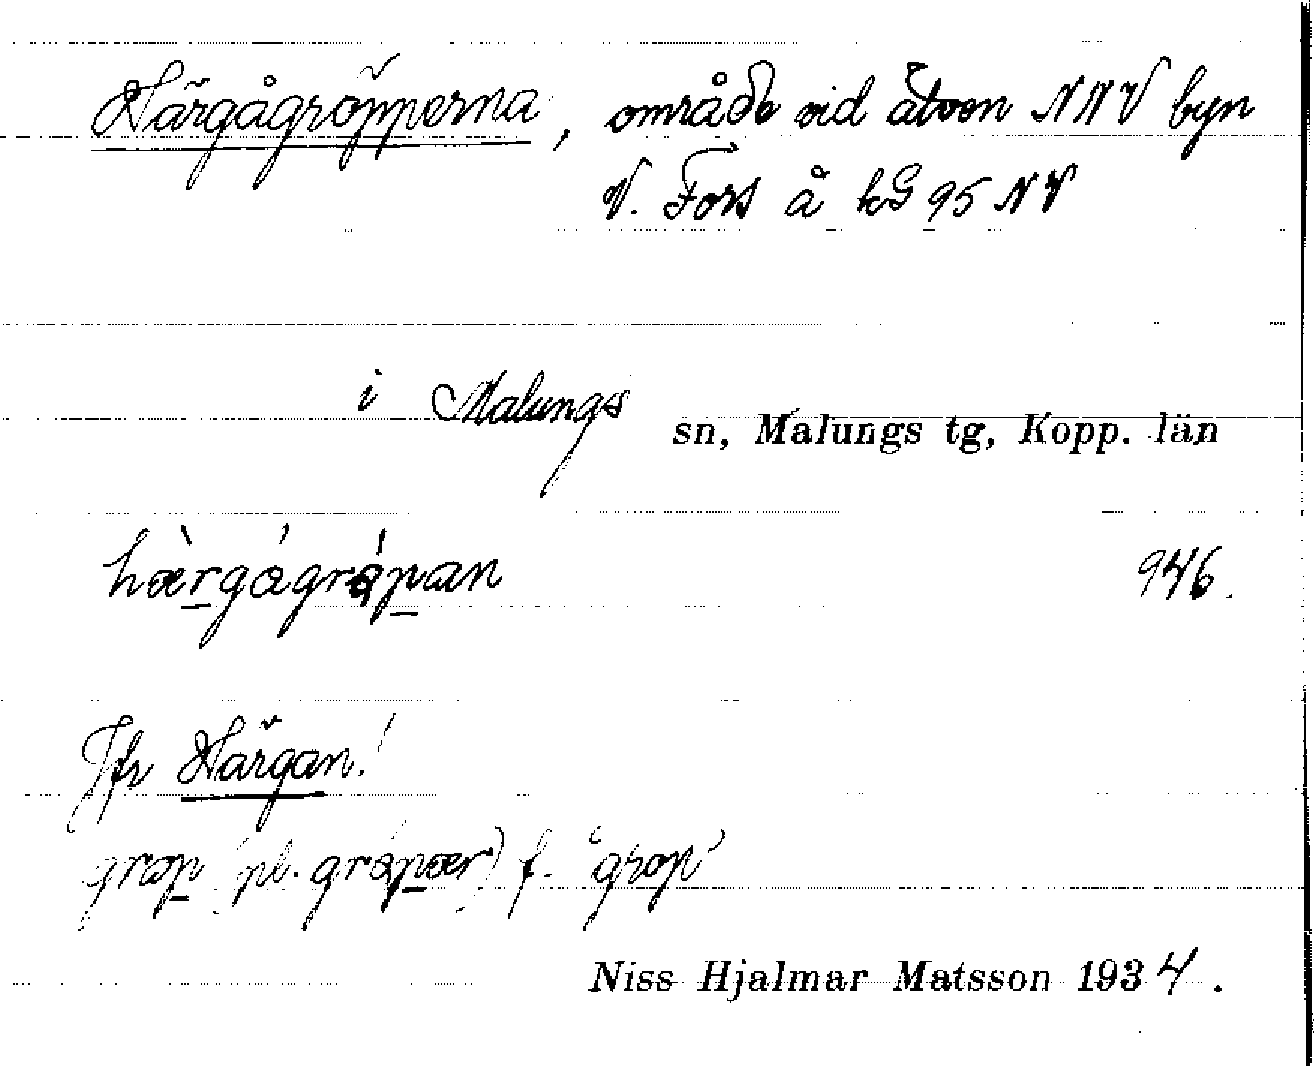 Härgågröpperna, område vid älven NNV byn
V. Fors å kG 95 NV
i Malungs sn, Malungs tg, Kopp. län
hæ̀rgágrǿpan 946.
Jfr Härgan!
grøp (pl. grǿpær) f. 'grop'
Niss Hjalmar Matsson 1934.